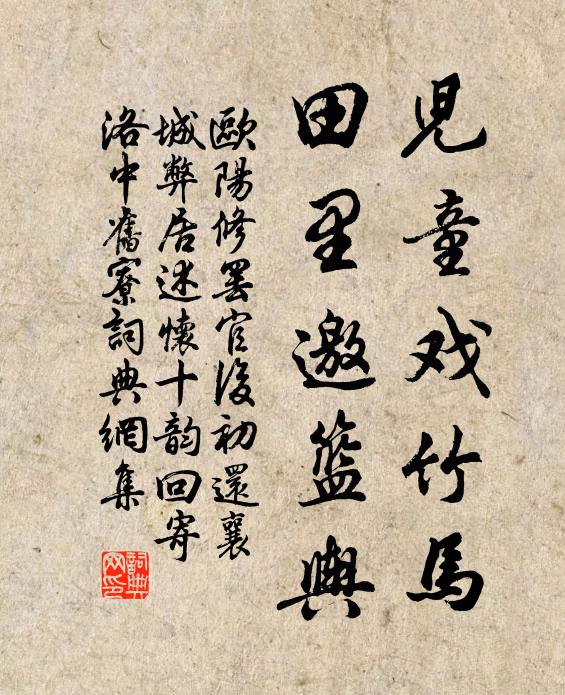 兒童戏竹馬
田里邀籃輿
歐陽修罢官後初還襄
城弊居述懷十韵回寄
洛中舊寮詞典網集
詞典网印